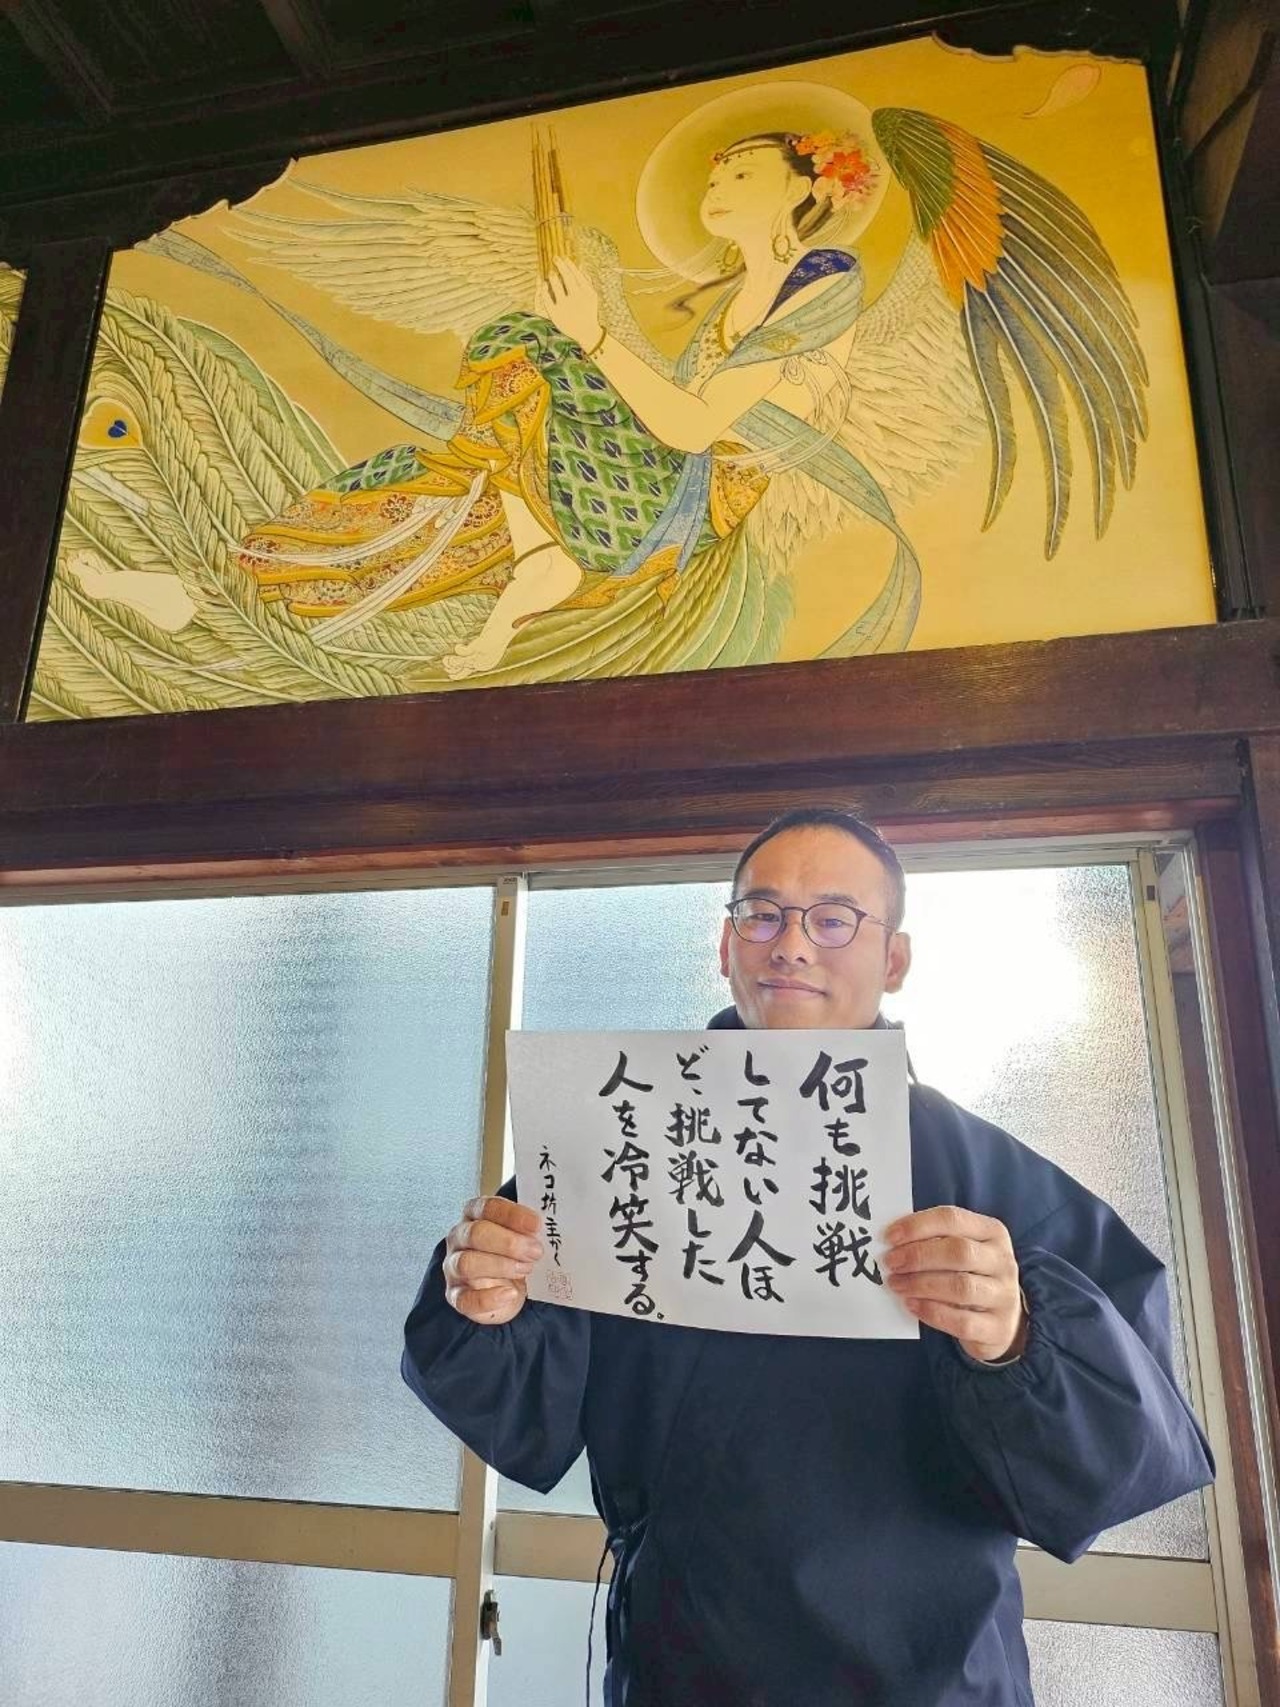 何も挑戦
してない人ほ
ど、挑戦した
人を冷笑する。
ネコ坊主かく